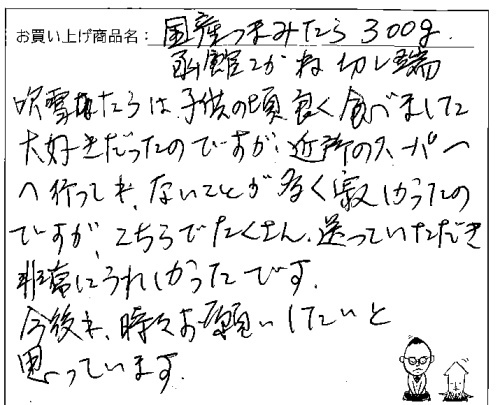 お買い上げ商品名: 国産つまみたら 300g.
函館こがね切し端
吹雪たらは子供の頃良く食べまして
大好きだったのですが、近所のスーパー
へ行っても、ないことが多く寂しかったの
ですが、こちらでたくさん、送っていただき
非常にうれしかったです。
今後も、時々お願いしたいと
思っています。